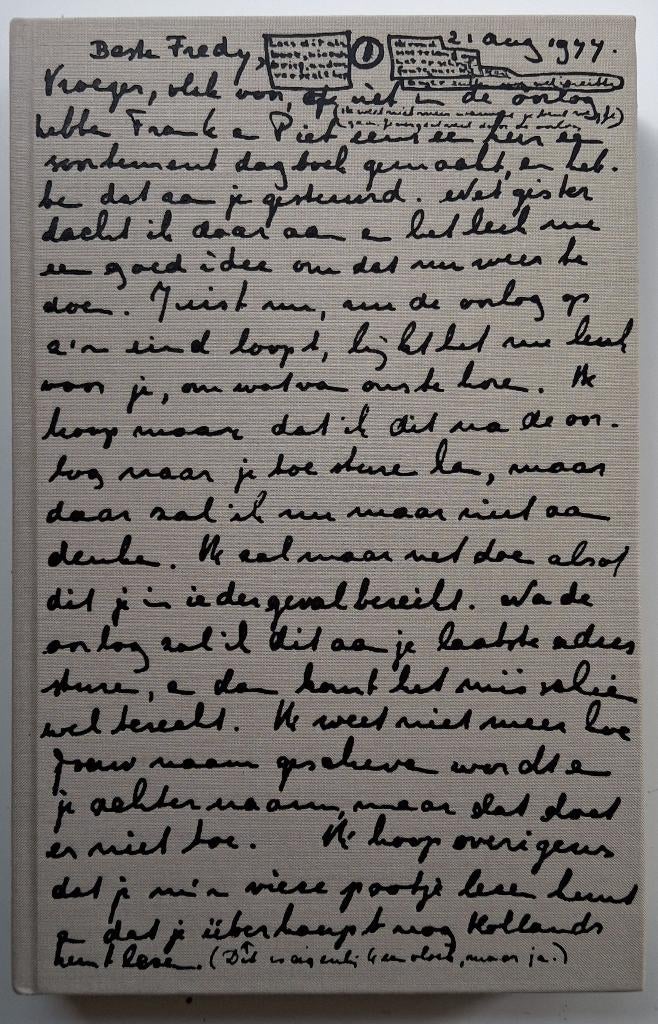 Beste Fredy, 21 aug 1944.
Vroeger, vlak voor, of net in de oorlog
hebben Frank en Piet eens een keer een
soortement dagboek gemaakt, en heb-
be dat aan je gestuurd. Net gister
dacht ik daar aan en het leek me
een goed idee om dat nu weer te
doen. Juist nu, nu de oorlog op
z'n eind loopt, lijkt het me leuk
voor je, om wat van ons te hore. Ik
hoop maar dat ik dit na de oor-
log naar je toe sture ka, maar
daar zal ik nu maar niet aa
denke. Ik zal maar net doe alsof
dit je in ieder geval bereikt. Na de
oorlog zal ik dit aan je laatste adres
sture, en dan komt het misschien
wel terecht. Ik weet niet meer hoe
jouw naam geschreve wordt en
je achternaam, maar dat doet
er niet toe. Ik hoop overigens
dat je m'n vieze pootje lezen kunt
en dat je überhaupt nog Hollands
kunt lezen. (Dit is eigenlijk een vloek, maar ja!)